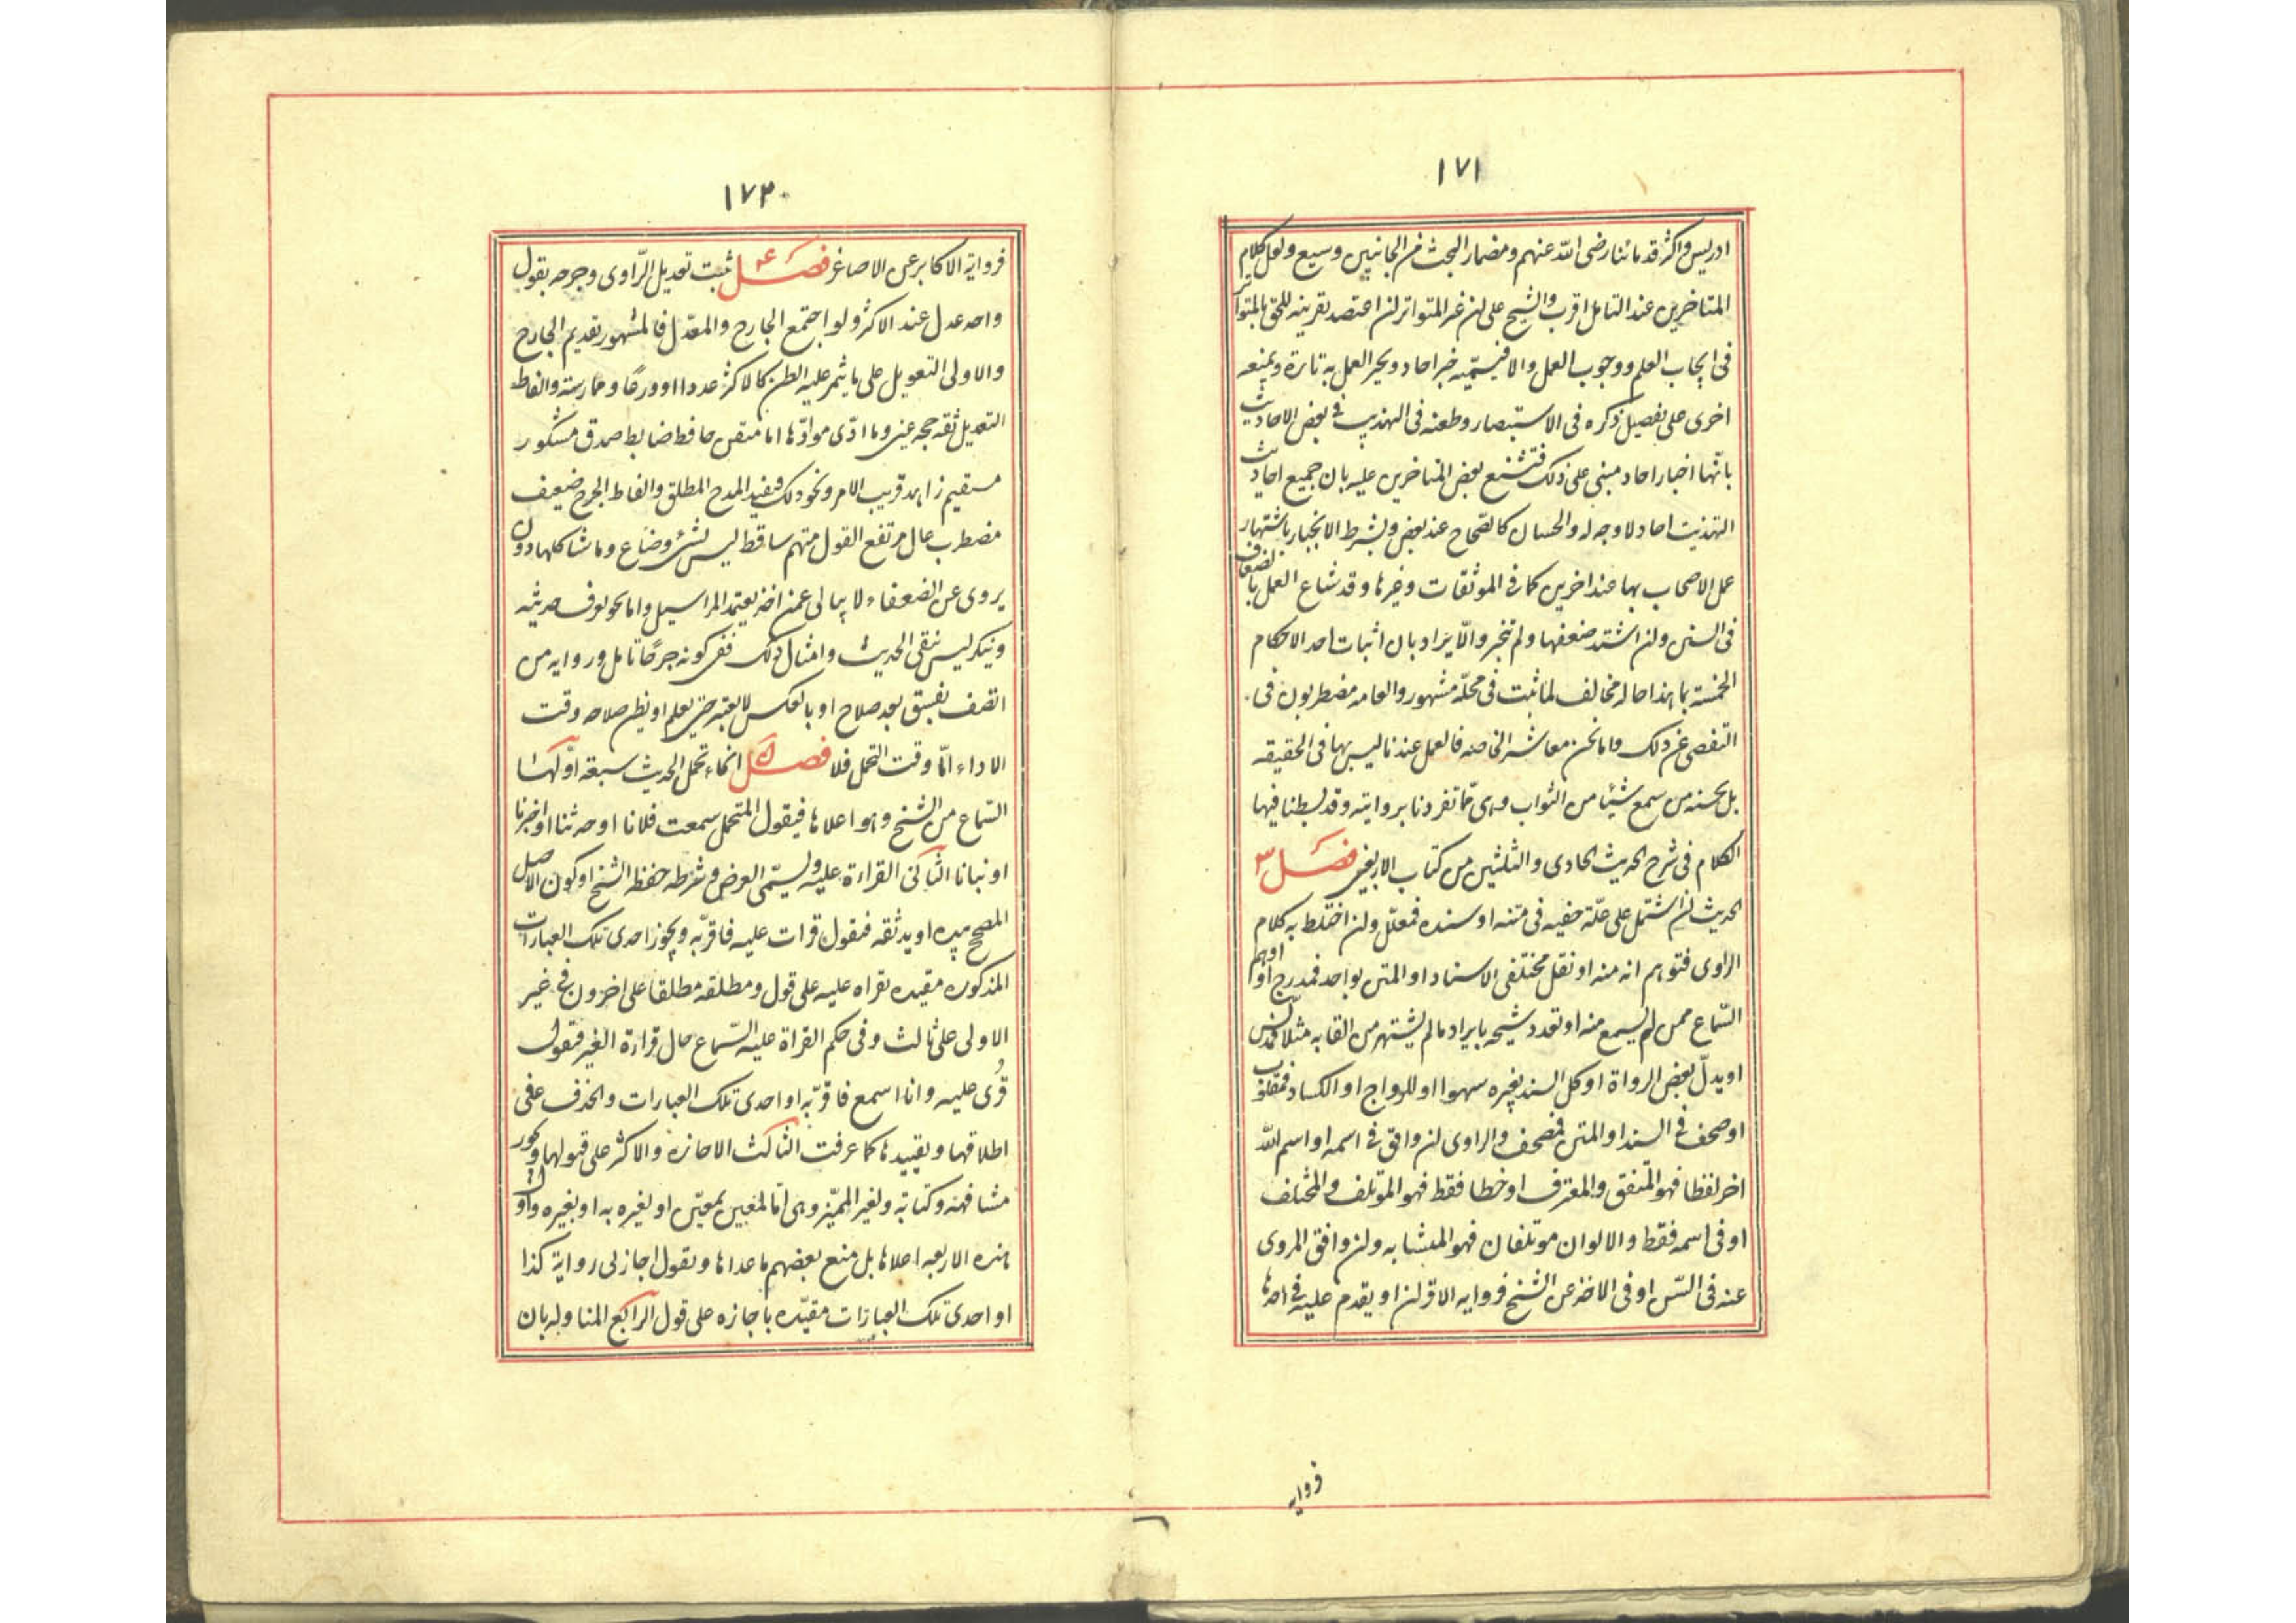 ١٧١
ادريس واكثر قدمائنا رضى الله عنهم ومضمار البحث من الجانبين وسيع ولعل كلام
المتاخرين عند التامل اقرب والشيخ على ان غير المتواتر ان اعتضد بقرينه الحق بالمتواتر
فى ايجاب العلم ووجوب العمل والا فيسميه خبر احاد ويجيز العمل به تارة ويمنعه
اخرى على تفصيل ذكره فى الاستبصار وطعنه فى التهذيب فى بعض الاحاديث
بانها اخبار احاد مبنى على ذلك فتشنع بعض المتاخرين عليه بان جميع احاديث
التهذيب احاد لا وجه له والحسان كالصحاح عند بعض وبشرط الانجبار باشتهار
عمل الاصحاب بها عند اخرين كما فى الموثقات وغيرها وقد شاع العمل بالضعاف
فى السنن وان اشتد ضعفها ولم تنجبر والايراد بان اثبات احد الاحكام
الخمسة بما هذا حاله مخالف لما ثبت فى محله مشهور والعامه مضطربون فى
التفصى عن ذلك واما نحن معاشر الخاصه فالعمل عندنا ليس بها فى الحقيقه
بل بحسنه من سمع شيئا من الثواب وهى مما تفردنا بروايته وقد بسطنا فيها
الكلام فى شرح الحديث الحادى والثلثين من كتاب الاربعين فصل ٣
الحديث ان اشتمل على علة خفيه فى متنه او سنده فمعلل وان اختلط به كلام
الراوى فتوهم انه منه او نقل مختلفى الاسناد او المتن بواحد فمدرج او اوهم
السماع ممن لم يسمع منه او تعدد شيخه بايراد ما لم يشتهر من القابه مثلا فمدلس
او بدل بعض الرواة او كل السند بغيره سهوا او للرواج او الكساد فمقلوب
او صحف فى السند او المتن فمصحف والراوى ان وافق فى اسمه او اسم الله
اخر لفظا فهو المتفق والمفترق او خطا فقط فهو المؤتلف والمختلف
او فى اسمه فقط والابوان مؤتلفان فهو المتشابه وان وافق المروى
عنه فى السن او فى الاخذ عن الشيخ فروايه الاقران او يقدم عليه فى احدها
فروايه
١٧٢
فرواية الاكابر عن الاصاغر فصل ٤ ثبت تعديل الراوى وجرحه بقول
واحد عدل عند الاكثر ولو اجتمع الجارح والمعدل فالمشهور تقديم الجارح
والاولى التعويل على ما يثمر عليه الظن كالاكثر عددا او ورعا وممارسته والفاظ
التعديل ثقه حجه عين وما ادى موادها اما متقن حافظ ضابط صدق مشكور
مستقيم زاهد قريب الامر ونحو ذلك فيفيد المدح المطلق والفاظ الجرح ضعيف
مضطرب غال مرتفع القول متهم ساقط ليس بشئ وضاع وما شاكلها دون
يروى عن الضعفاء لا يبالى عمن اخذ يعتمد المراسيل واما نحو يعرف حديثه
وينكر ليس بنقى الحديث وامثال ذلك ففى كونه جرحا تامل وروايه من
اتصف بفسق بعد صلاح او بالعكس لا يعتبر حتى يعلم او يظن صلاحه وقت
الاداء اما وقت التحمل فلا فصل ٥ انحاء تحمل الحديث سبعة اولها
السماع من الشيخ وهو اعلاها فيقول المتحمل سمعت فلانا او حدثنا او اخبرنا
او نبانا الثانى القراءة عليه ويسمى العرض وشرطه حفظ الشيخ او كون الاصل
المصحح بيده او يد ثقه فيقول قرات عليه فاقر به ويجوز احدى تلك العبارات
المذكوره مقيده بقراه عليه على قول ومطلقه مطلقا على اخر وفى غير
الاولى على ثالث وفى حكم القراة عليه السماع حال قراءة الغير فيقول
قرى عليه وانا اسمع فاقر به او احدى تلك العبارات والخلاف فى
اطلاقها وتقييدها كما عرفت الثالث الاجازه والاكثر على قبولها ويجوز
مشافهة وكتابة ولغير المميز وهى اما لمعين بمعين او بغيره به او بغيره واول
هذه الاربعه اعلاها بل منع بعضهم ما عداها ويقول اجاز لى رواية كذا
او احدى تلك العبارات مقيده باجازه على قول الرابع المناوله بان